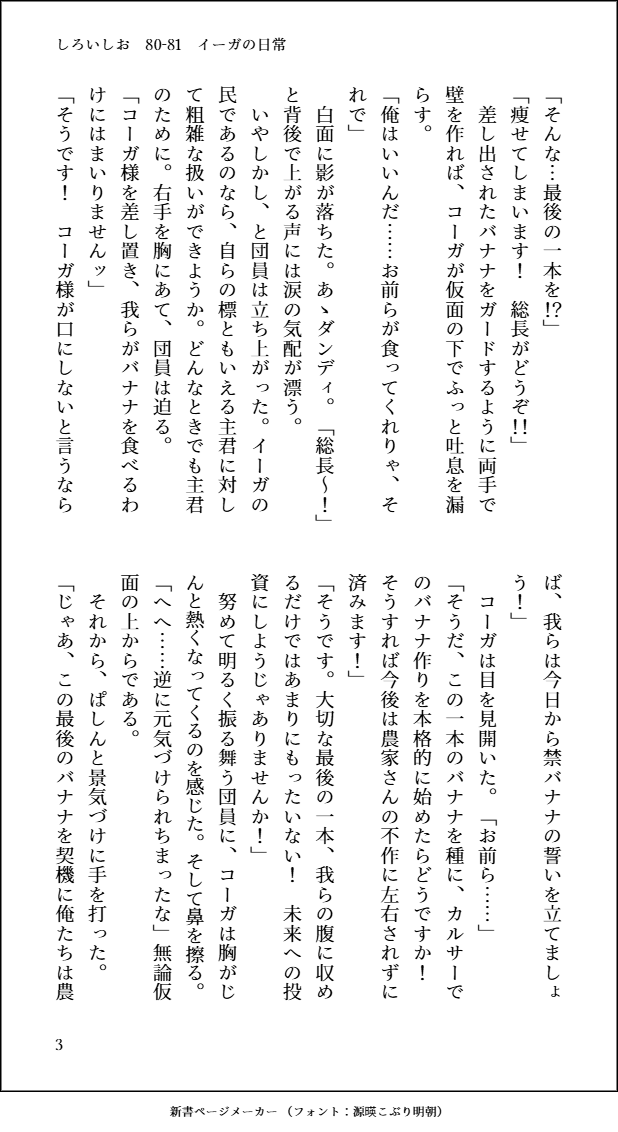 しろいしお　80-81　イーガの日常
「そんな…最後の一本を!?」
「痩せてしまいます！　総長がどうぞ!!」
　差し出されたバナナをガードするように両手で
壁を作れば、コーガが仮面の下でふっと吐息を漏
らす。
「俺はいいんだ……お前らが食ってくれりゃ、そ
れで」
　白面に影が落ちた。あゝダンディ。「総長～！」
と背後で上がる声には涙の気配が漂う。
　いやしかし、と団員は立ち上がった。イーガの
民であるのなら、自らの標ともいえる主君に対し
て粗雑な扱いができようか。どんなときでも主君
のために。右手を胸にあて、団員は迫る。
「コーガ様を差し置き、我らがバナナを食べるわ
けにはまいりませんッ」
「そうです！　コーガ様が口にしないと言うなら
ば、我らは今日から禁バナナの誓いを立てましょ
う！」
　コーガは目を見開いた。「お前ら……」
「そうだ、この一本のバナナを種に、カルサーで
のバナナ作りを本格的に始めたらどうですか！
そうすれば今後は農家さんの不作に左右されずに
済みます！」
「そうです。大切な最後の一本、我らの腹に収め
るだけではあまりにもったいない！　未来への投
資にしようじゃありませんか！」
　努めて明るく振る舞う団員に、コーガは胸がじ
んと熱くなってくるのを感じた。そして鼻を擦る。
「へへ……逆に元気づけられちまったな」無論仮
面の上からである。
　それから、ぱしんと景気づけに手を打った。
「じゃあ、この最後のバナナを契機に俺たちは農
3
新書ページメーカー（フォント：源暎こぶり明朝）